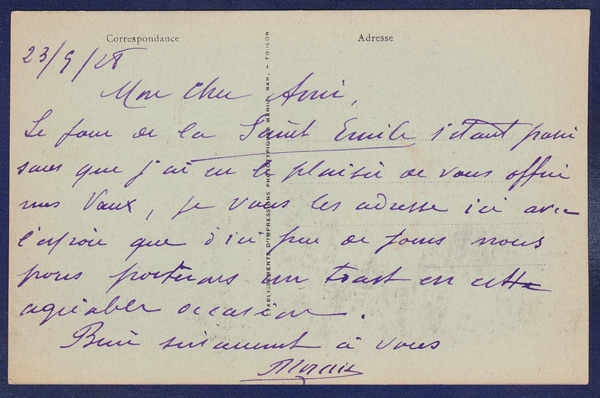 Correspondance
Adresse
23/9/28
Mon cher Ami,
Le jour de la Saint Emile s'étant passé
sans que j'ai eu le plaisir de vous offrir
mes Vœux, je vous les adresse ici avec
l'espoir que d'ici peu de jours nous
nous porterons un toast en cette
agréable occasion.
Bien sincèrement à vous
ETABLISSEMENTS D'IMPRESSIONS PHOTOTYPIQUE MARIUS BAR. - TOULON